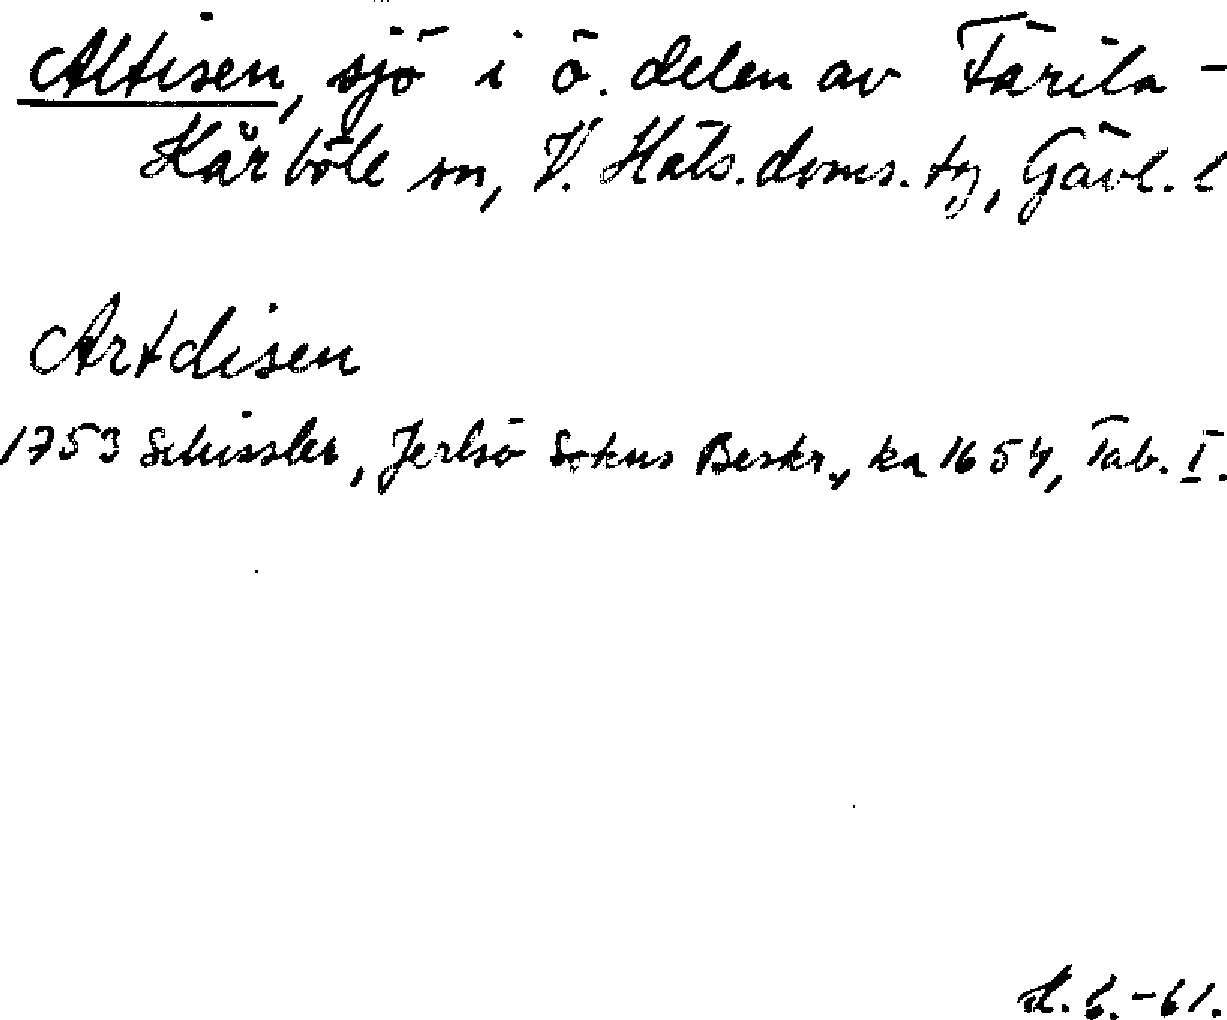 Altisen, sjö i ö. delen av Färila-
Kårböle sn, V. Häls. doms. tg, Gävl. l
Artdisen
1753 Schissler, Jerlsö Sokns Beskr., ka 1654, Tab. I.
-61.